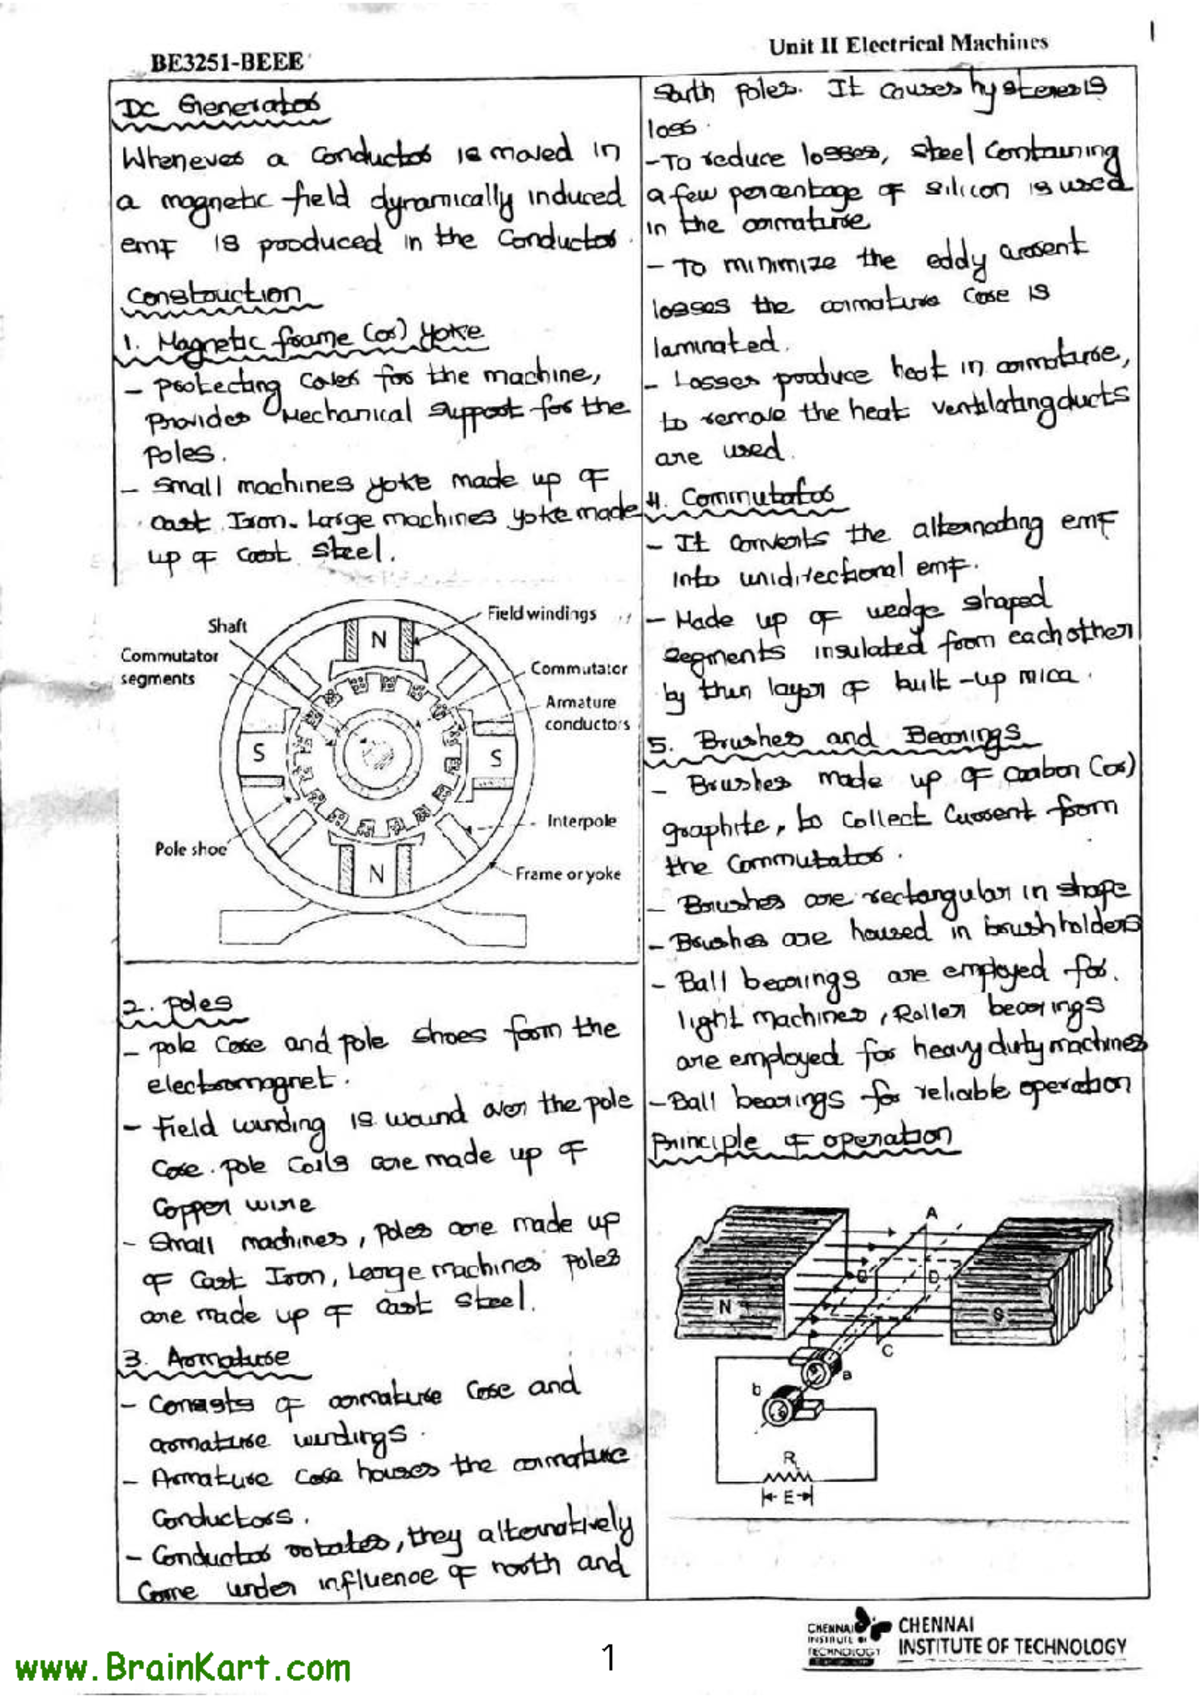 BE3251-BEEE
Unit II Electrical Machines
1
DC Generator
Whenever a conductor is moved in
a magnetic field dynamically induced
emf is produced in the conductor.
Construction
1. Magnetic frame (or) Yoke
- Protecting cover for the machine,
Provides Mechanical support for the
Poles.
- Small machines yoke made up of
cast Iron. Large machines yoke made
up of cast steel.
Shaft
Commutator
segments
Pole shoe
Field windings
Commutator
Armature
conductors
Interpole
Frame or yoke
N
S
S
N
2. Poles
- Pole core and pole shoes form the
electromagnet.
- Field winding is wound over the pole
core. Pole coils are made up of
copper wire
- Small machines, Poles are made up
of Cast Iron, Large machines Poles
are made up of cast steel.
3. Armature
- Consists of armature core and
armature windings.
- Armature core houses the armature
conductors.
- Conductor rotates, they alternatively
come under influence of north and
South poles. It causes hysteresis
loss.
- To reduce losses, steel containing
a few percentage of silicon is used
in the armature
- To minimize the eddy current
losses the armature core is
laminated.
- Losses produce heat in armature,
to remove the heat ventilating ducts
are used.
4. Commutator
- It converts the alternating emf
into unidirectional emf.
- Made up of wedge shaped
segments insulated from each other
by thin layer of built-up mica.
5. Brushes and Bearings
- Brushes made up of carbon (or)
graphite, to collect current from
the commutator.
- Brushes are rectangular in shape
- Brushes are housed in brush holders
- Ball bearings are employed for
light machines, Roller bearings
are employed for heavy duty machines
- Ball bearings for reliable operation
Principle of operation
A
B
D
N
S
C
a
b
R
E
CHENNAI
INSTITUTE OF
TECHNOLOGY
CHENNAI
INSTITUTE OF TECHNOLOGY
www.BrainKart.com
1